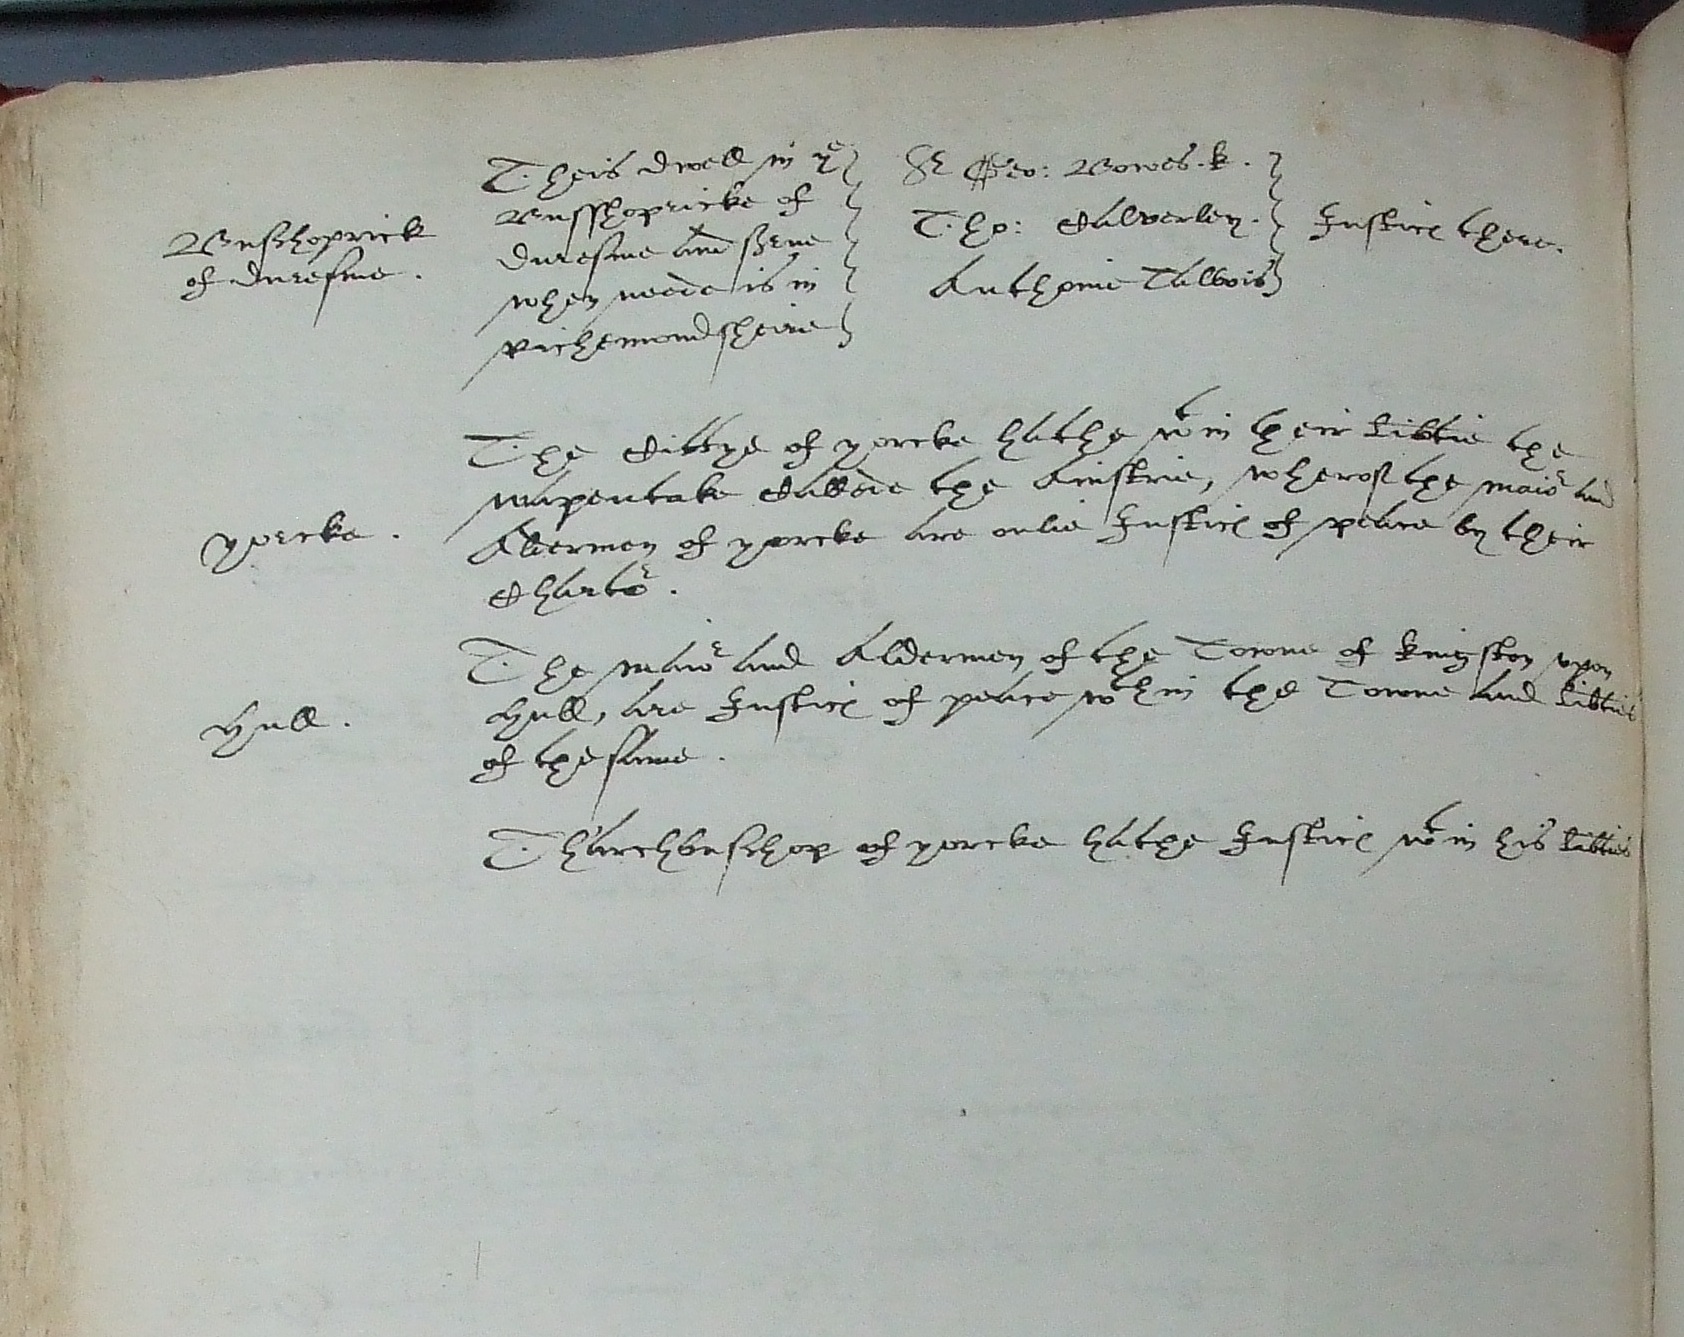 Busshoprick
of duresme .
Theis dwell in ye
Busshopricke of
duresme and serve
when neede is in
Richemondsheire
Sr Geo: Bowes . k .
Tho: Calverley .
Anthonie Talbois
Justices there .
yorcke .
The Cittye of yorcke hathe wtin their libtie the
wapentake Callede the Ainstrie, wherof the maior and
Aldermen of yorcke are onlie Justices of peace by their
Charter .
Hull .
The maior and Aldermen of the Towne of Kingston upon
Hull, are Justices of peace wthin the Towne and libties
of the same .
Tharchbusshop of yorcke hathe Justices wtin his libties